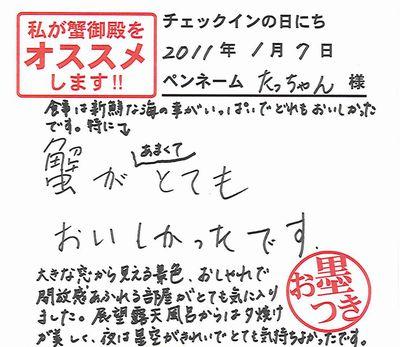 私が蟹御殿を
オススメ
します!!
チェックインの日にち
2011年 1月7日
ペンネーム たっちゃん 様
食事は新鮮な海の幸がいっぱいでどれもおいしかった
です。特に↴
蟹が あまくて とても
おいしかったです.
大きな窓から見える景色、おしゃれで
開放感あふれる部屋がとても気に入り
ました。展望露天風呂からは夕焼け
が美しく、夜は星空がきれいでとても気持ちよかったです。
お墨つき